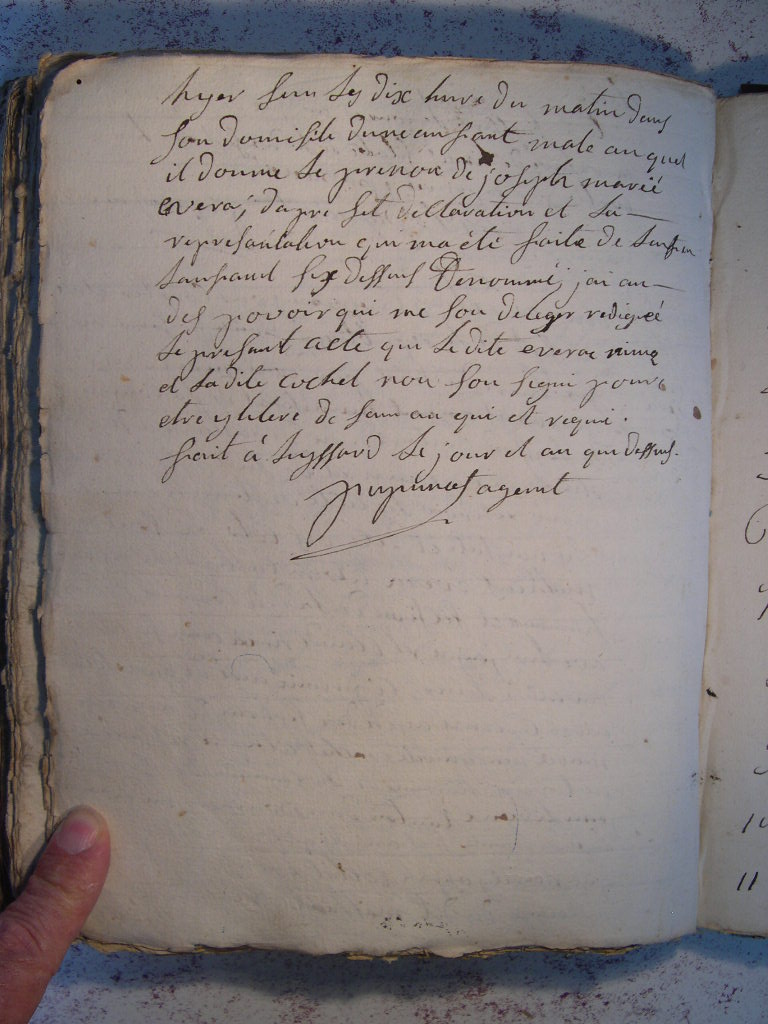 hyer seur les dix hure du matin dans
son domisile dune ansfant male au quel
il donne le prenon de joseph marië
evera, dapre set declaration et la
represantation qui ma été faite de
lansfant six dessus Denommé, jai au
des povoir qui me son deleger redigëé
le presant acte que le dite everae
et ladite cochel non son signi pour
etre de au qui et requi.
fait à luyssard le jour et an que dessus.
agent
10
11